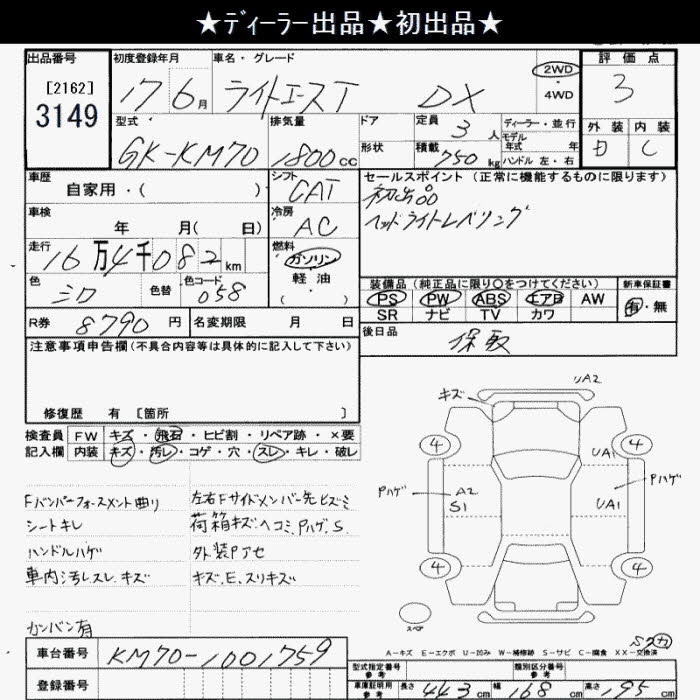 ★ディーラー出品★初出品★
出品番号 初度登録年月 車名・グレード 評価点
[2162]
3149
17 6月 ライトエースT DX 2WD・4WD 3
型式 排気量 ドア 定員 3人 ディーラー・並行 外装 内装
モデル年式 年
GK-KM70 1800cc 形状 積載 750kg ハンドル 左・右 C
車歴 シフト セールスポイント (正常に機能するものに限ります)
自家用・( ) CAT 初出品
車検 冷房 ヘッドライトレベリング
年 月( 日) AC
走行 燃料
16万4千082km ガソリン
軽油
・( )
装備品 (純正品に限り○をつけてください) 新車保証書
色 色替 色コード PS PW ABS エアB AW 有・無
シロ 058 SR ナビ TV カワ
R券 8790円 名変期限 月 日 後日品 保取
注意事項申告欄(不具合内容等は具体的に記入して下さい)
修復歴 有 [箇所 ]
検査員 FW キズ・飛石・ヒビ割・リペア跡・×要
記入欄 内装 キズ・汚レ・コゲ・穴・スレ・キレ・破レ
キズ UA2
4 4
UA1
Pハゲ A2 Pハゲ
S1 UA1
4 4
スペア
Fバンパーフォースメント曲り 左右Fサイドメンバー先ヒズミ
シートキレ 荷箱キズヘコミ,Pハゲ,S
ハンドルハゲ 外装Pアセ
車内汚レスレ,キズ キズ,E,スリキズ
カンバン有
A-キズ E-エクボ U-凹み W-補修跡 S-サビ C-腐食 XX-交換済
車台番号 KM70-1001759
登録番号
型式指定番号 参考 類別区分番号 参考
車庫証明用 参考 長さ 443cm 幅 168cm 高さ 195cm